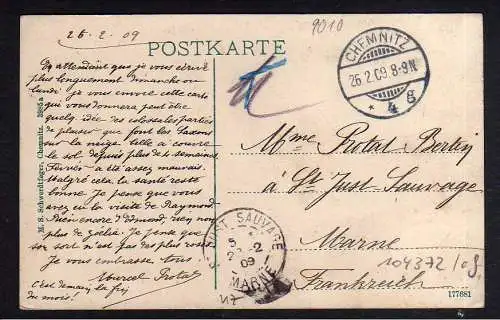 26-2-09
9010
POSTKARTE
CHEMNITZ
26.2.09.8-9N.
* 4 g
En attendant que je vous écrive
plus longuement dimanche ou
lundi je vous envoie cette carte
qui vous donnera peut être
quelq. idée des colossales parties
de plaisir que font les Saxons
sur la neige. Elle a couvert
le sol depuis plus de 4 semaines.
Février a été assez mauvais.
Malgré cela la santé reste
bonne. Je pense que vous
avez eu la visite de Raymond
Rien encore d'Edmond, rien non
plus de Je pense que
son sort n'est pas des plus rosés.
Je vous embrasse tous.
Marcel Protat
C'est demain la
de mois
M. S. Schwerdtfeger, Chemnitz.
Mme Protat-Bertin
à St Just-Sauvage
Marne
Frankreich
ST JUST SAUVAGE
5
-2
09
MARNE
104372/09
177681